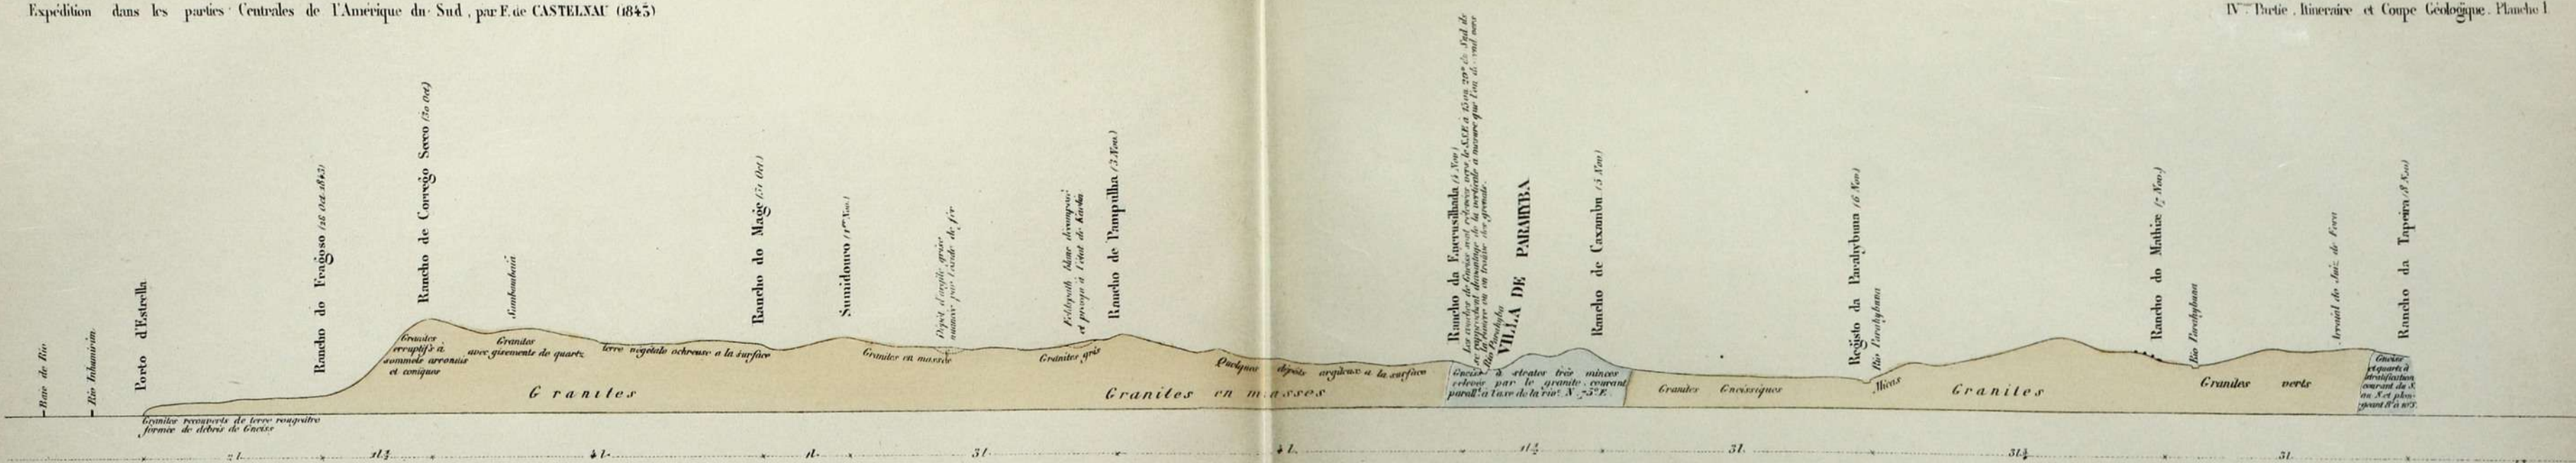 Expédition dans les parties Centrales de l'Amérique du Sud, par F. de CASTELNAU (1843)
IVe Partie, Itineraire et Coupe Géologique. Planche 1
Baie de Rio
Rio Inhumirim
Porto d'Estrella
Rancho do Fragoso (28 Oct. 1843)
Rancho de Corrego Secco (30 Oct)
Sambambaia
Rancho do Mage (31 Oct)
Sumidouro (1er Nov.)
Dépôt d'argile grise
nuancée par l'oxide de fer
Feldspath blanc décomposé
et presqu'à l'état de kaolin
Rancho de Pampulha (3 Nov.)
Rancho da Encrusilhada (4 Nov)
Les couches de Gneiss sont relevées vers le S.S.E à 15 ou 20° du Sud
se rapprochent davantage de la verticale à mesure que l'on descend vers
la rivière ou on trouve des grenats.
Rio Parahyba
VILLA DE PARAHYBA
Rancho de Caxambu (5 Nov)
Registo da Parahybuna (6 Nov)
Rio Parahybuna
Rancho do Mathiæ (7 Nov.)
Rio Parahybuna
Arraial do Juiz de Fora
Rancho da Tapeira (8 Nov)
Granites
éruptifs à
sommets arrondis
et coniques
Granites
avec gisements de quartz
terre végétale ochreuse a la surface
Granites en masses
Granites gris
Quelques dépôts argileux a la surface
Gneiss à strates très minces
relevés par le granite, courant
parallt. à l'axe de la rivre. N. 75° E.
Granites Gneissiques
Micas
Granites
Granites verts
Gneiss
et quartz à
stratification
courant du S.
au N. et plon-
geant
Granites
Granites en masses
Granites recouverts de terre rougeâtre
formée de débris de Gneiss
2 l.
1 l ½
4 l.
1 l.
3 l.
4 l.
1 l ½
3 l.
3 l ½
3 l.